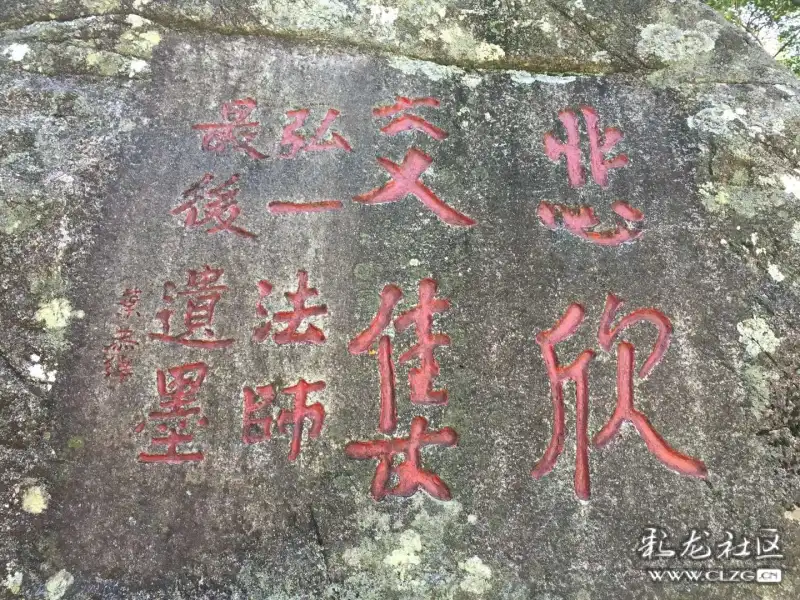 悲欣
交集
弘一法師
最後遺墨
葉恭綽
彩龙社区
WWW.CLZG.CN